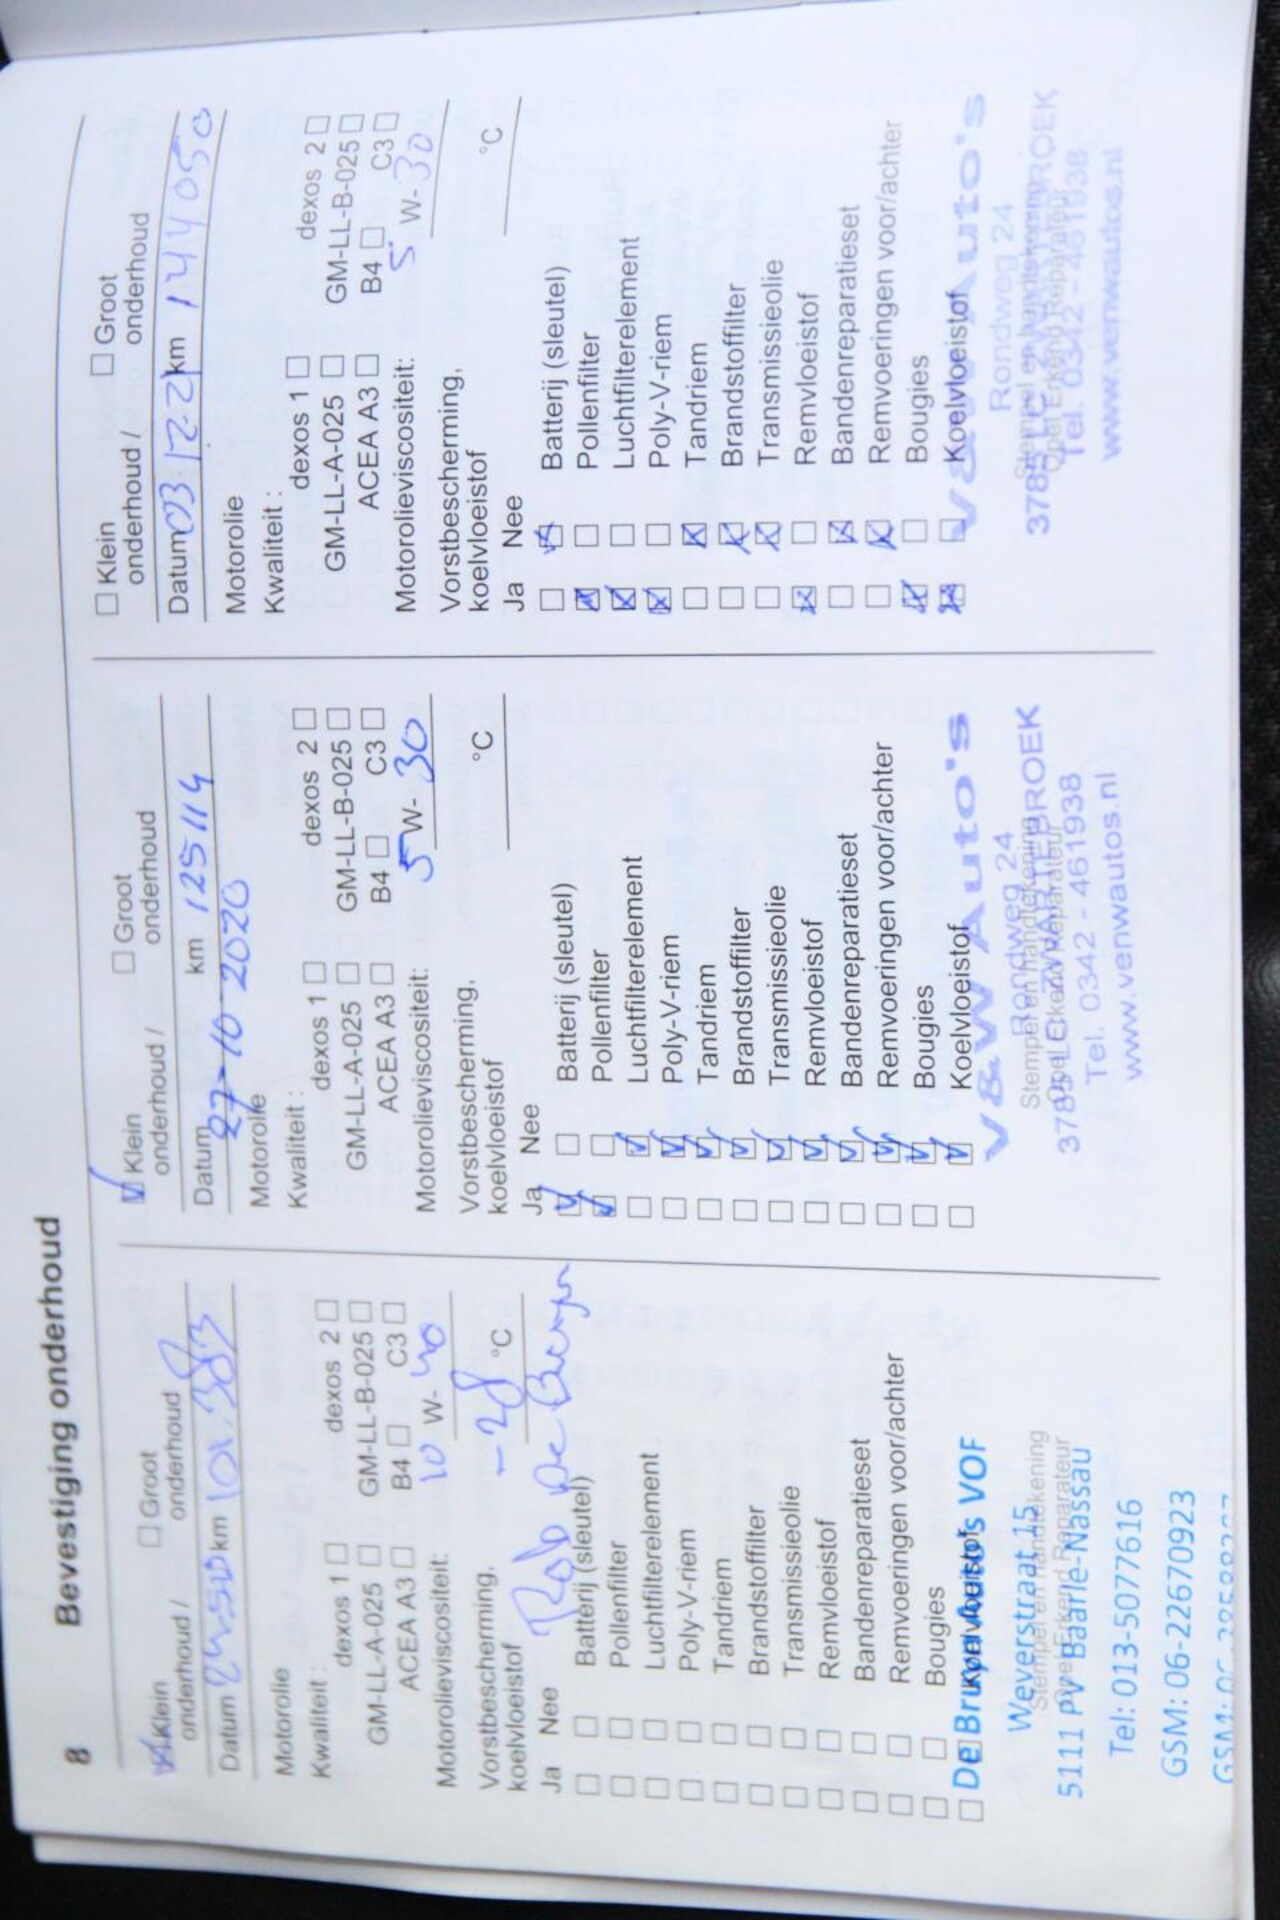 8 Bevestiging onderhoud
Klein onderhoud / Groot onderhoud
Datum km 101.383
Motorolie
Kwaliteit :
dexos 1 dexos 2
GM-LL-A-025 GM-LL-B-025
ACEA A3 B4 C3
Motorolieviscositeit: 10 W- 40
Vorstbescherming,
koelvloeistof -28 °C
Ja Nee
Batterij (sleutel)
Pollenfilter
Luchtfilterelement
Poly-V-riem
Tandriem
Brandstoffilter
Transmissieolie
Remvloeistof
Bandenreparatieset
Remvoeringen voor/achter
Bougies
Koelvloeistof
De Bruyn Auto's VOF
Stempel en handtekening
Opel Erkend Reparateur
Weverstraat 15
5111 PV Baarle-Nassau
Tel: 013-5077616
GSM: 06-22670923
Klein onderhoud / Groot onderhoud
Datum 27-10 2020 km 125114
Motorolie
Kwaliteit :
dexos 1 dexos 2
GM-LL-A-025 GM-LL-B-025
ACEA A3 B4 C3
Motorolieviscositeit: 5 W- 30
Vorstbescherming,
koelvloeistof °C
Ja Nee
Batterij (sleutel)
Pollenfilter
Luchtfilterelement
Poly-V-riem
Tandriem
Brandstoffilter
Transmissieolie
Remvloeistof
Bandenreparatieset
Remvoeringen voor/achter
Bougies
Koelvloeistof
V&W Auto's
Rondweg 24
Stempel en handtekening
Opel Erkend Reparateur
3785 LC ZWARTEBROEK
Tel. 0342 - 461938
www.venwautos.nl
Klein onderhoud / Groot onderhoud
Datum 03 12.21 km 144050
Motorolie
Kwaliteit :
dexos 1 dexos 2
GM-LL-A-025 GM-LL-B-025
ACEA A3 B4 C3
Motorolieviscositeit: 5 W- 30
Vorstbescherming,
koelvloeistof °C
Ja Nee
Batterij (sleutel)
Pollenfilter
Luchtfilterelement
Poly-V-riem
Tandriem
Brandstoffilter
Transmissieolie
Remvloeistof
Bandenreparatieset
Remvoeringen voor/achter
Bougies
Koelvloeistof
V&W Auto's
Rondweg 24
Stempel en handtekening
Opel Erkend Reparateur
3785 LC ZWARTEBROEK
Tel. 0342 - 461938
www.venwautos.nl